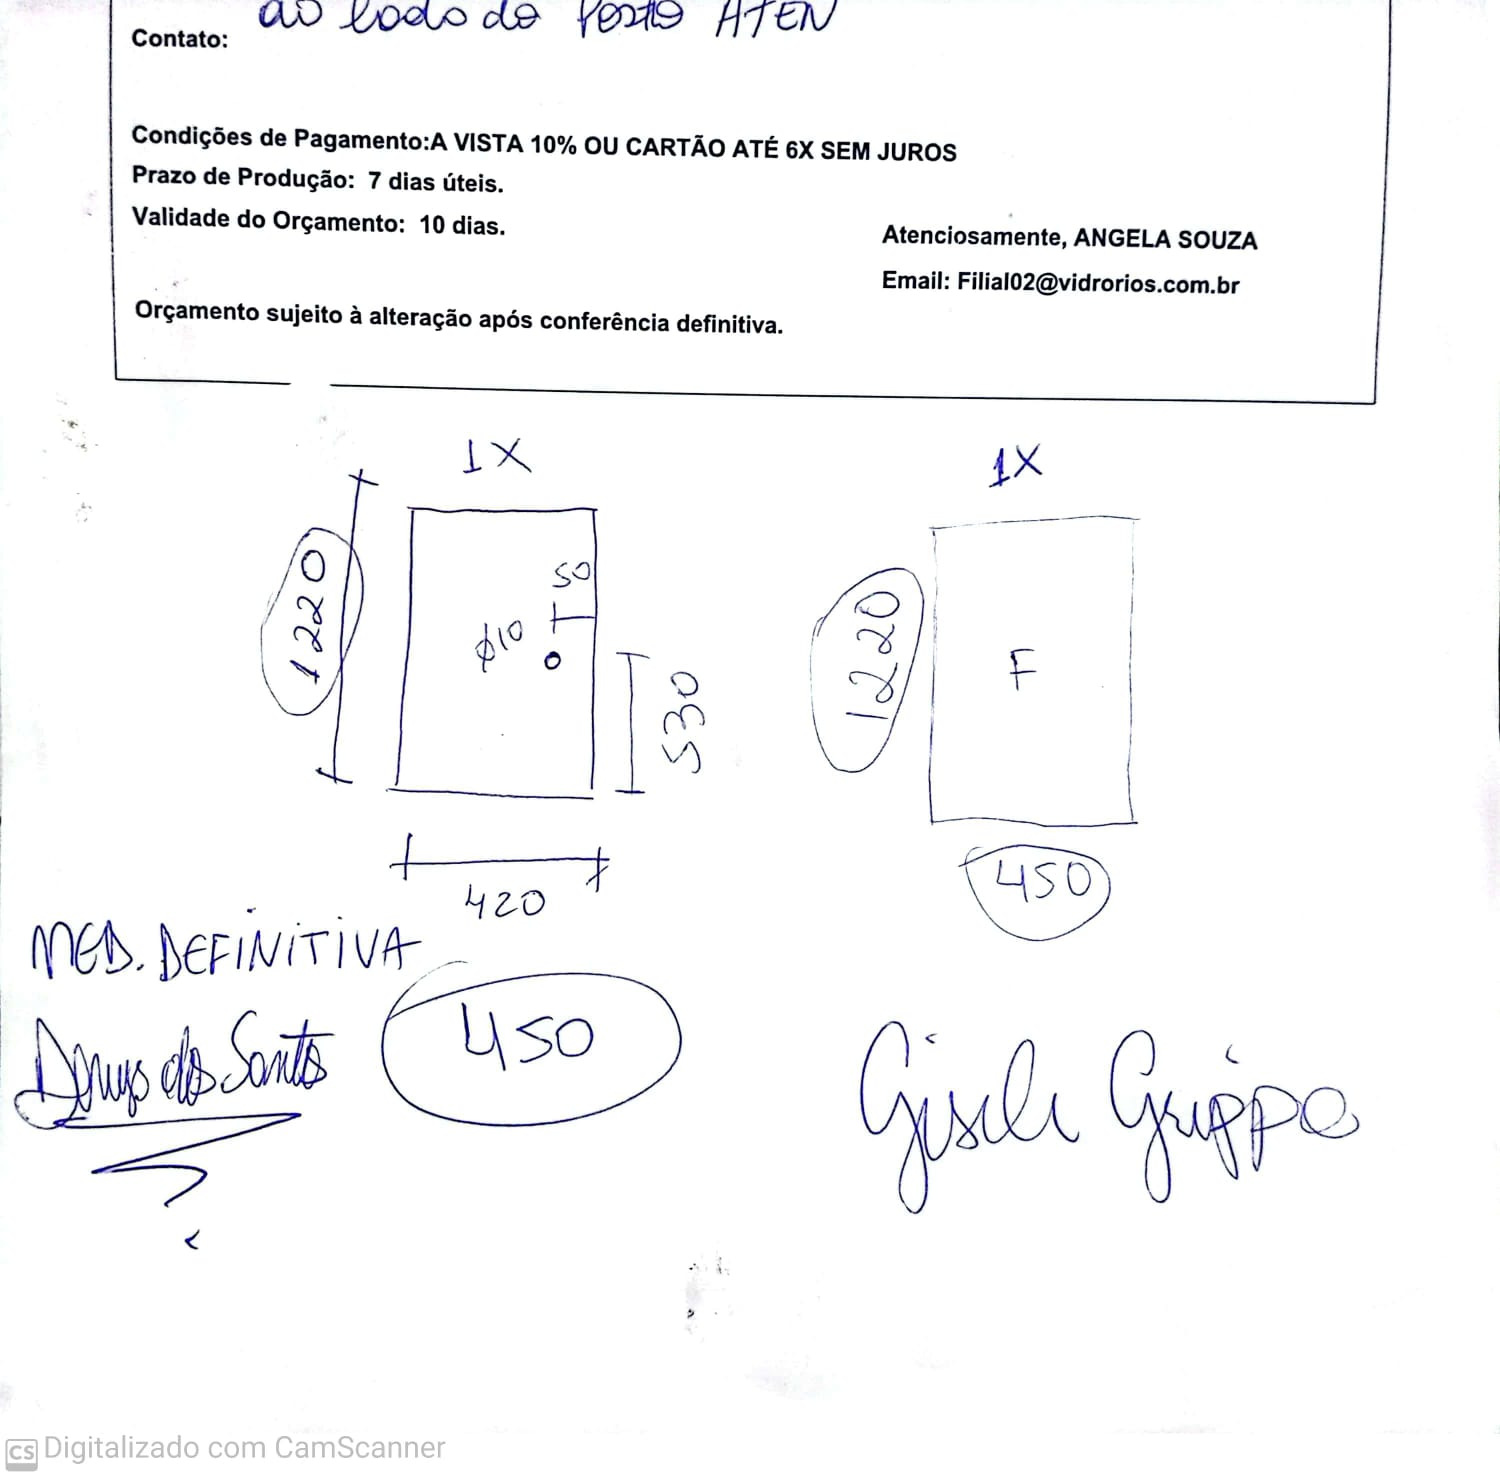 ao lado do Posto ATEN
Contato:
Condições de Pagamento:A VISTA 10% OU CARTÃO ATÉ 6X SEM JUROS
Prazo de Produção: 7 dias úteis.
Validade do Orçamento: 10 dias.
Atenciosamente, ANGELA SOUZA
Email: Filial02@vidrorios.com.br
Orçamento sujeito à alteração após conferência definitiva.
1X
1X
1220
50
ø10
530
1220
F
420
450
MED. DEFINITIVA
450
dos Santos
Giseli Grippo
CS Digitalizado com CamScanner